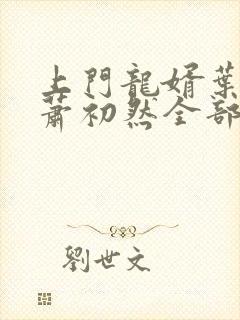 上門龍婿葉
蕭初然全部
劉世文